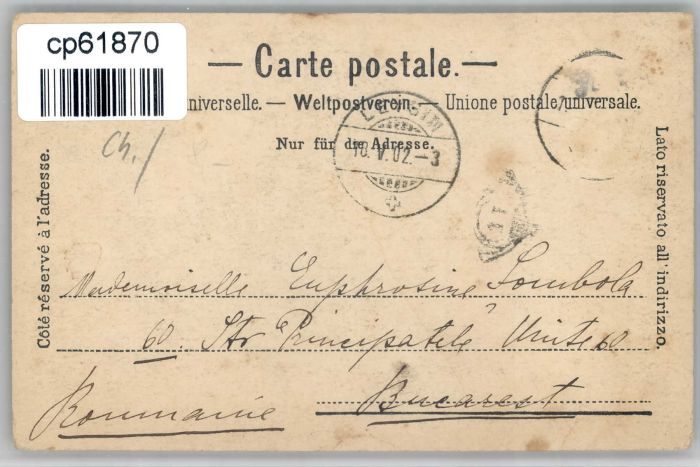 cp61870
— Carte postale. —
niverselle. — Weltpostverein. — Unione postale universale.
Nur für die Adresse.
LEYSIN
18.V.02.-3
Ch. /
Côté réservé à l'adresse.
Lato riservato all' indirizzo.
Mademoiselle Euphrosine Sombola
60. Str "Principatele Unite" 60
Bucarest
Roumanie